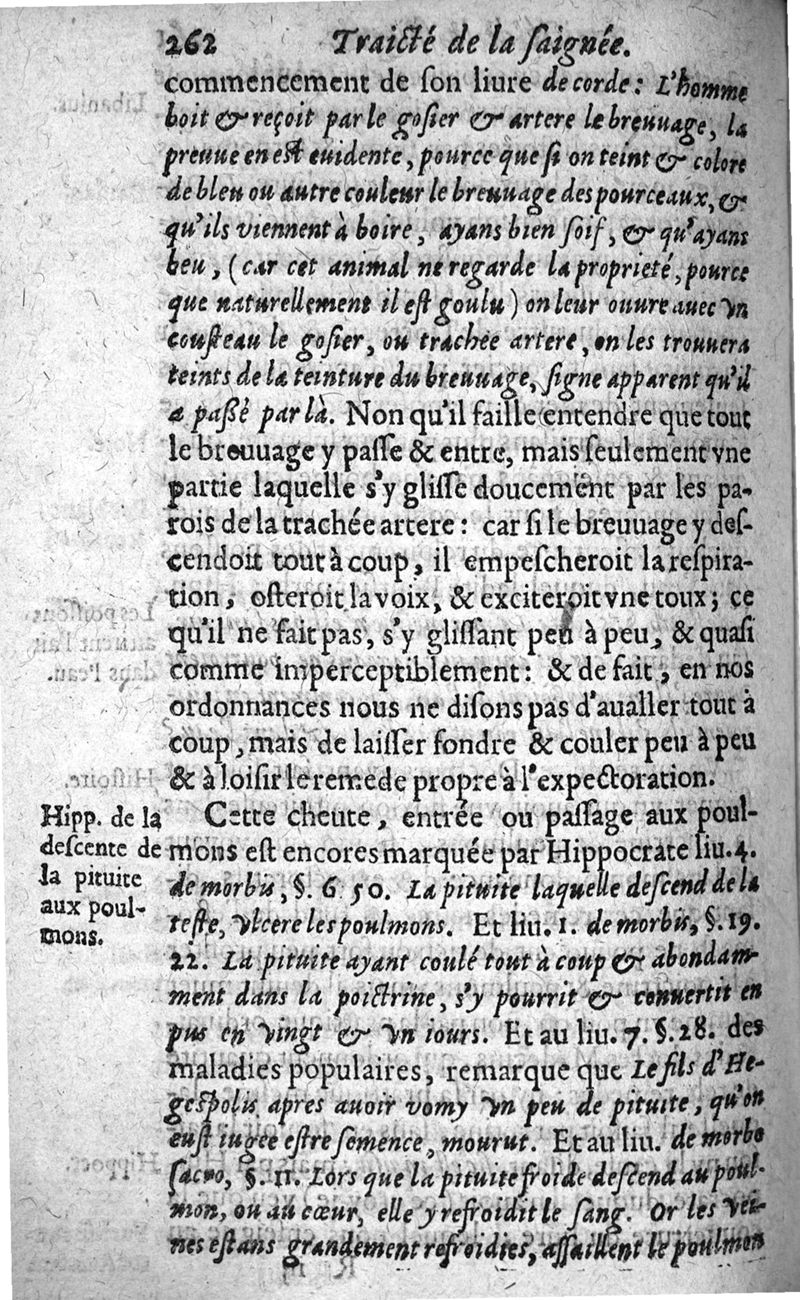 262 Traicté de la ſaignée.
commencement de ſon liure de corde: L'homme
boit & reçoit par le goſier & artere le breuuage, la
preuue en eſt euidente, pource que ſi on teint & colore
de bleu ou autre couleur le breuuage des pourceaux, &
qu'ils viennent à boire, ayans bien ſoif, & qu'ayans
beu, (car cet animal ne regarde la proprieté, pource
que naturellement il eſt goulu) on leur ouure auec vn
couſteau le goſier, ou trachée artere, on les trouuera
teints de la teinture du breuuage, ſigne apparent qu'il
a paßé par là. Non qu'il faille entendre que tout
le breuuage y paſſe & entre, mais ſeulement vne
partie laquelle s'y gliſſe doucement par les pa-
rois de la trachée artere: car ſi le breuuage y deſ-
cendoit tout à coup, il empeſcheroit la reſpira-
tion, oſteroit la voix, & exciteroit vne toux; ce
qu'il ne fait pas, s'y gliſſant peu à peu, & quaſi
comme imperceptiblement: & de fait, en nos
ordonnances nous ne diſons pas d'aualler tout à
coup, mais de laiſſer fondre & couler peu à peu
& à loiſir le remede propre à l'expectoration.
Hipp. de la
deſcente de
la pituite
aux poul-
mons.
Cette cheute, entrée ou paſſage aux poul-
mons eſt encores marquée par Hippocrate liu. 4.
de morbis, §. 6 50. La pituite laquelle deſcend de la
teſte, vlcere les poulmons. Et liu. 1. de morbis, §. 19.
22. La pituite ayant coulé tout à coup & abondam-
ment dans la poictrine, s'y pourrit & conuertit en
pus en vingt & vn iours. Et au liu. 7. §. 28. des
maladies populaires, remarque que Le fils d'He-
geſpolis apres auoir vomy vn peu de pituite, qu'on
euſt iugée eſtre ſemence, mourut. Et au liu. de morbo
ſacro, §. 11. Lors que la pituite froide deſcend au poul-
mon, ou au cœur, elle y refroidit le ſang. Or les vei-
nes eſtans grandement refroidies, aſſaillent le poulmon